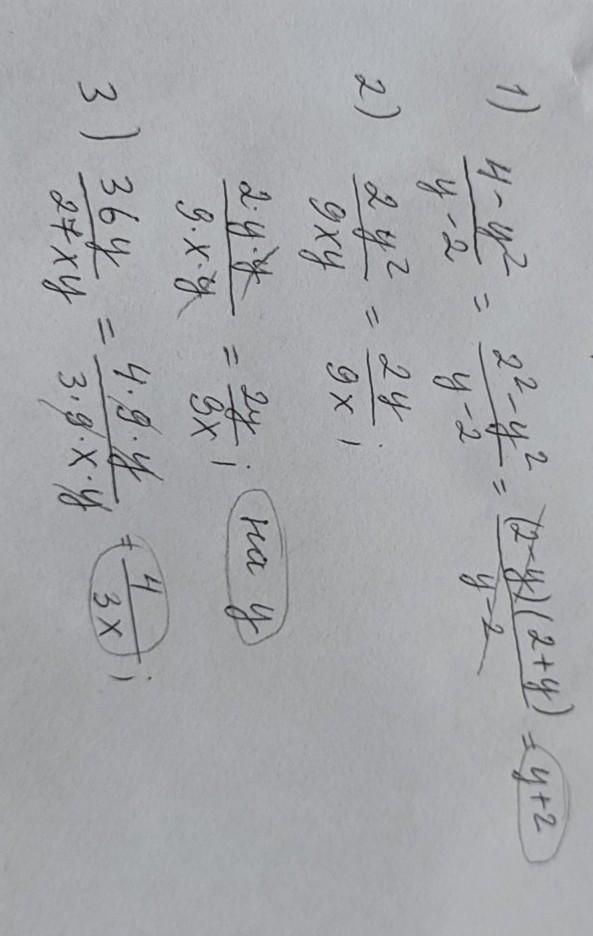 1) (4 - y²)/(y - 2) = (2² - y²)/(y - 2) = ((2-y)(2+y))/(y-2) = y+2
2) 2y²/9xy = 2y/9x;
(2·y·y)/(9·x·y) = 2y/9x; на y
3) 36y/27xy = (4·9·y)/(3·9·x·y) = 4/3x;